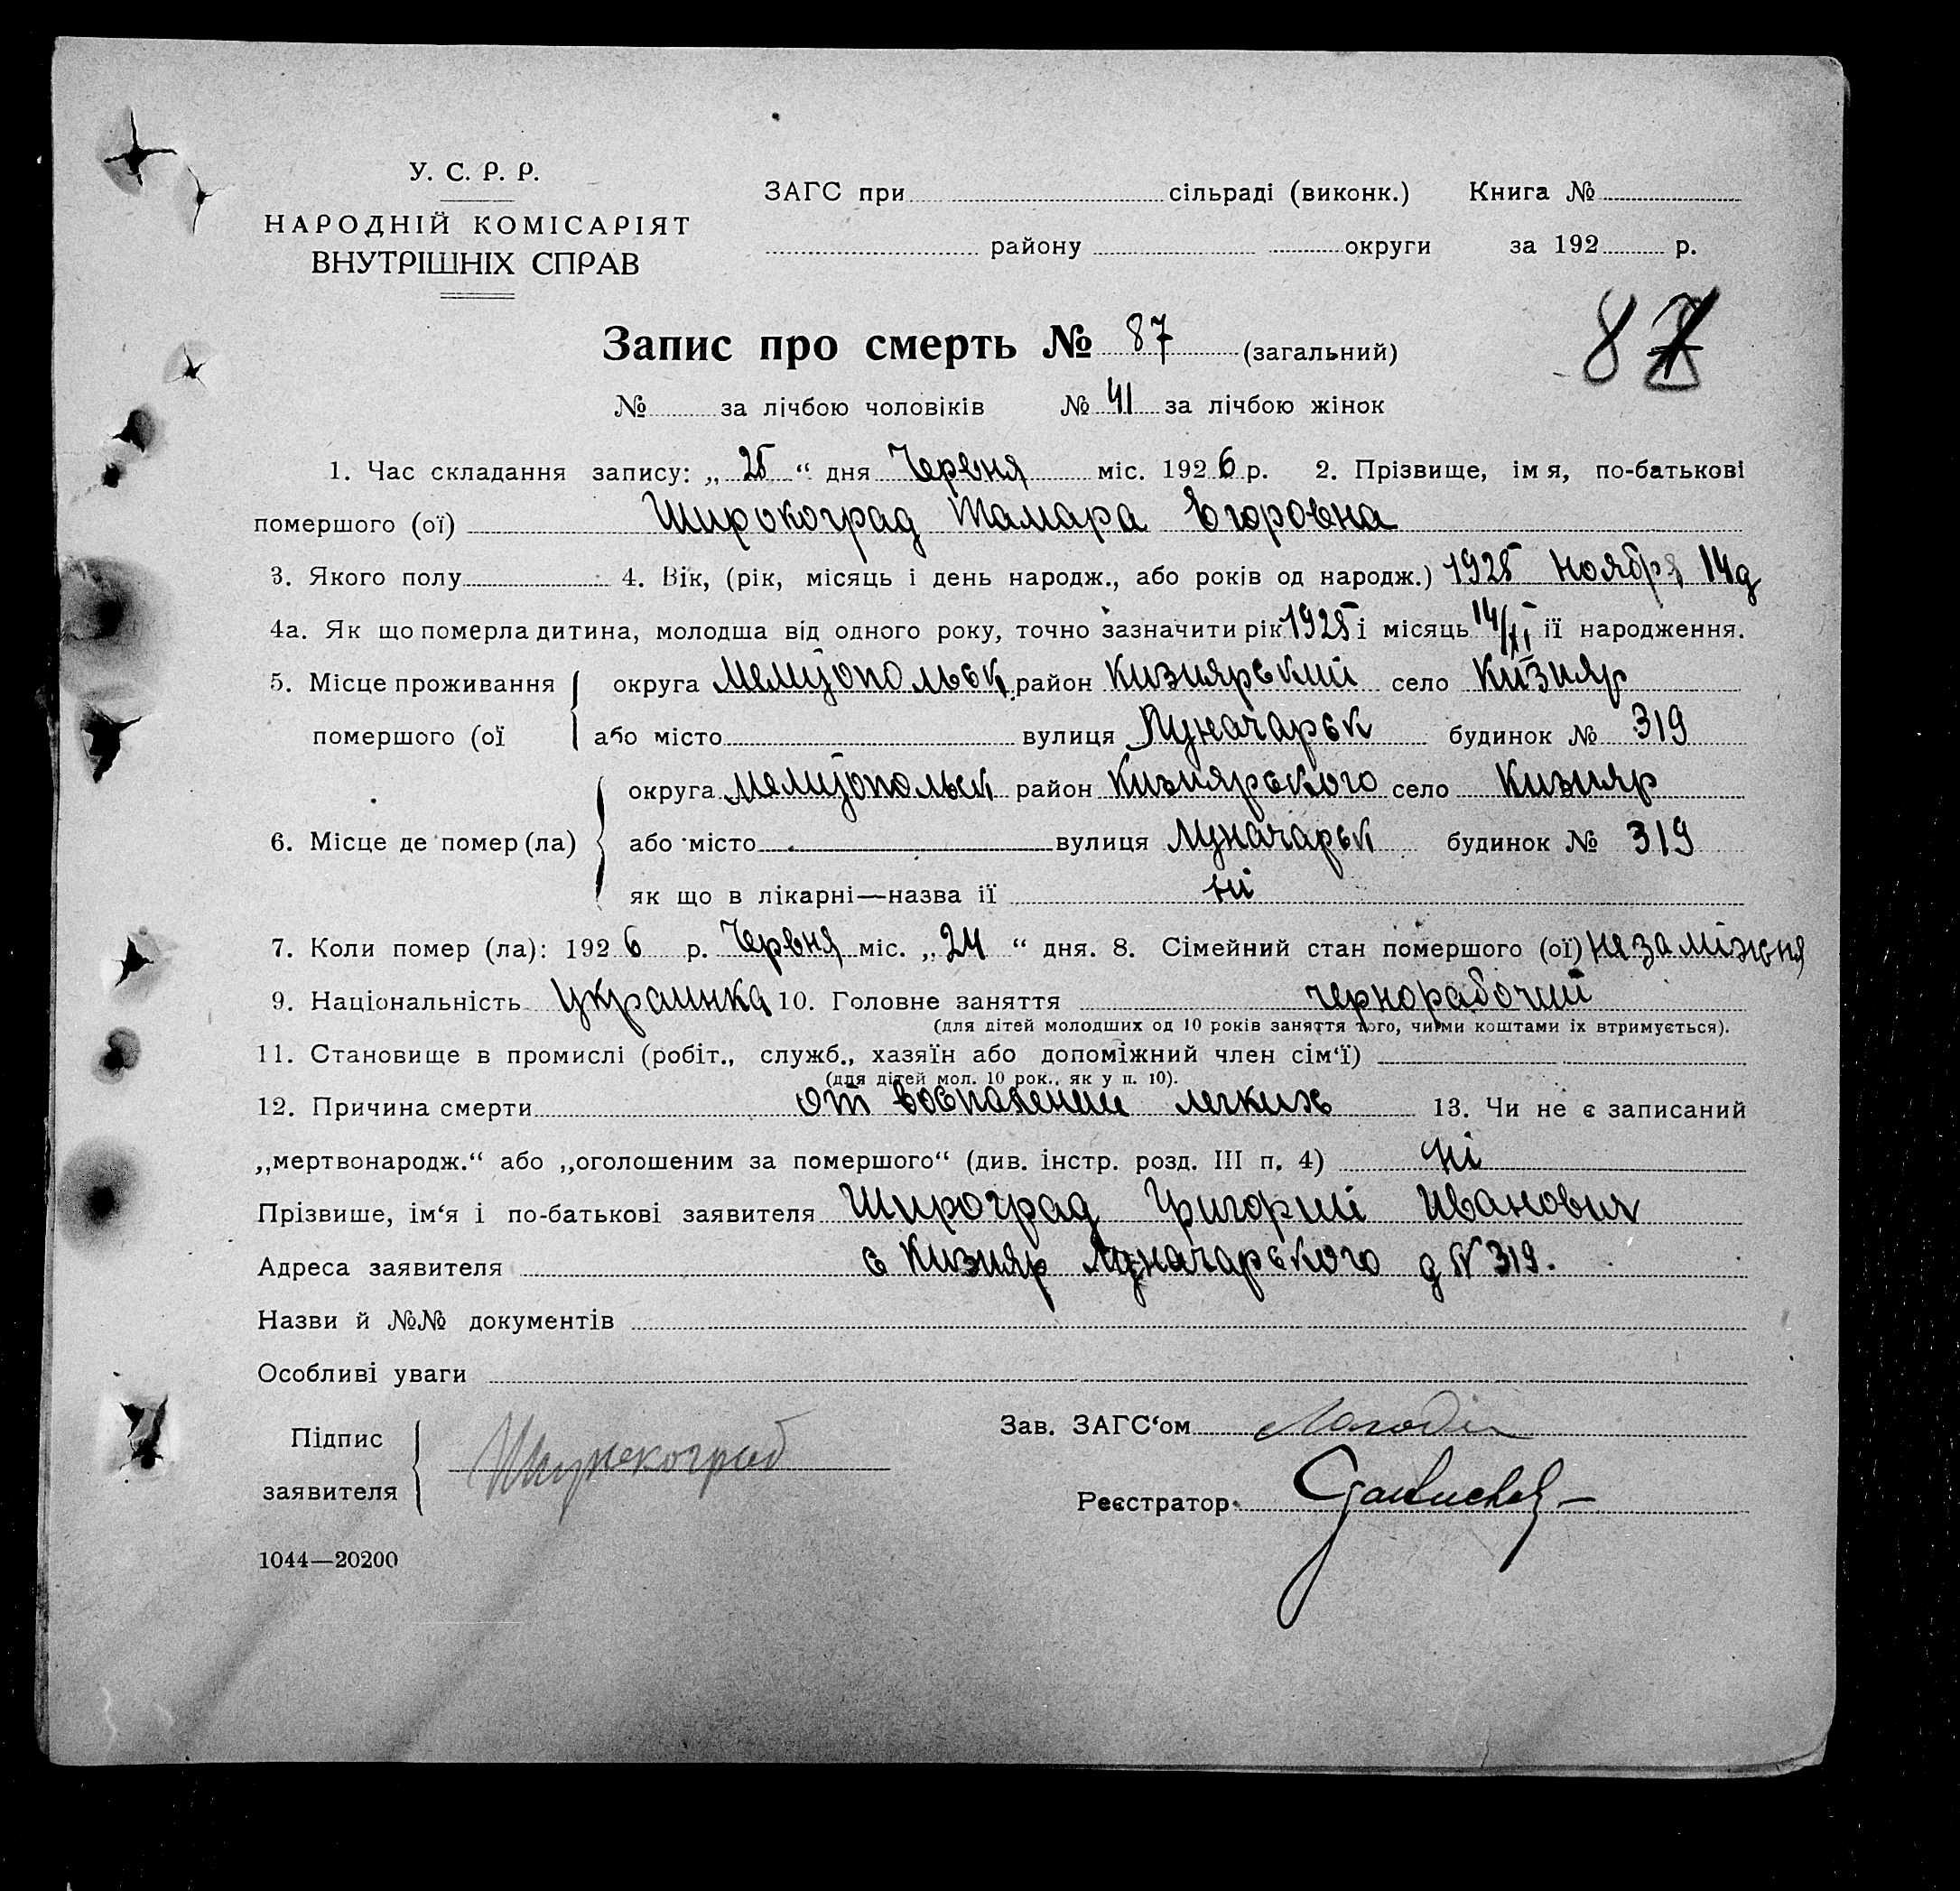 У. С. Р. Р.
НАРОДНІЙ КОМІСАРІЯТ
ВНУТРІШНІХ СПРАВ
ЗАГС при сільраді (виконк.) Книга №
району округи за 192 р.
Запис про смерть № 87 (загальний)
87
№ за лічбою чоловіків № 41 за лічбою жінок
1. Час складання запису: „ 25 “ дня Червня міс. 1926 р. 2. Прізвище, ім я, по-батькові
помершого (ої) Широкоград Тамара Егоровна
3. Якого полу 4. Вік, (рік, місяць і день народж., або років од народж.) 1925 ноября 14д
4а. Як що померла дитина, молодша від одного року, точно зазначити рік 1925 і місяць 14/XI її народження.
5. Місце проживання округа Мелитопольск район Кизиярський село Кизияр
помершого (ої або місто вулиця Луначарск будинок № 319
округа Мелитопольск район Кизиярського село Кизияр
6. Місце де помер (ла) або місто вулиця Луначарск будинок № 319
як що в лікарні—назва ії ні
7. Коли помер (ла): 1926 р. Червня міс. „ 24 “ дня. 8. Сімейний стан помершого (ої) незаміжня
9. Національність Украинка 10. Головне заняття чернорабочий
(для дітей молодших од 10 років заняття того, чиїми коштами їх втримується).
11. Становище в промислі (робіт., служб., хазяїн або допоміжний член сім‘ї)
(для дітей мол. 10 рок., як у п. 10).
12. Причина смерти от воспалении легких 13. Чи не є записаний
„мертвонародж.“ або „оголошеним за помершого“ (див. інстр. розд. III п. 4) ні
Прізвише, ім‘я і по-батькові заявителя Широград Григорий Иванович
Адреса заявителя с Кизияр Луначарського д N 319.
Назви й №№ документів
Особливі уваги
Підпис заявителя Широкоград
Зав. ЗАГС‘ом
Реєстратор
1044—20200